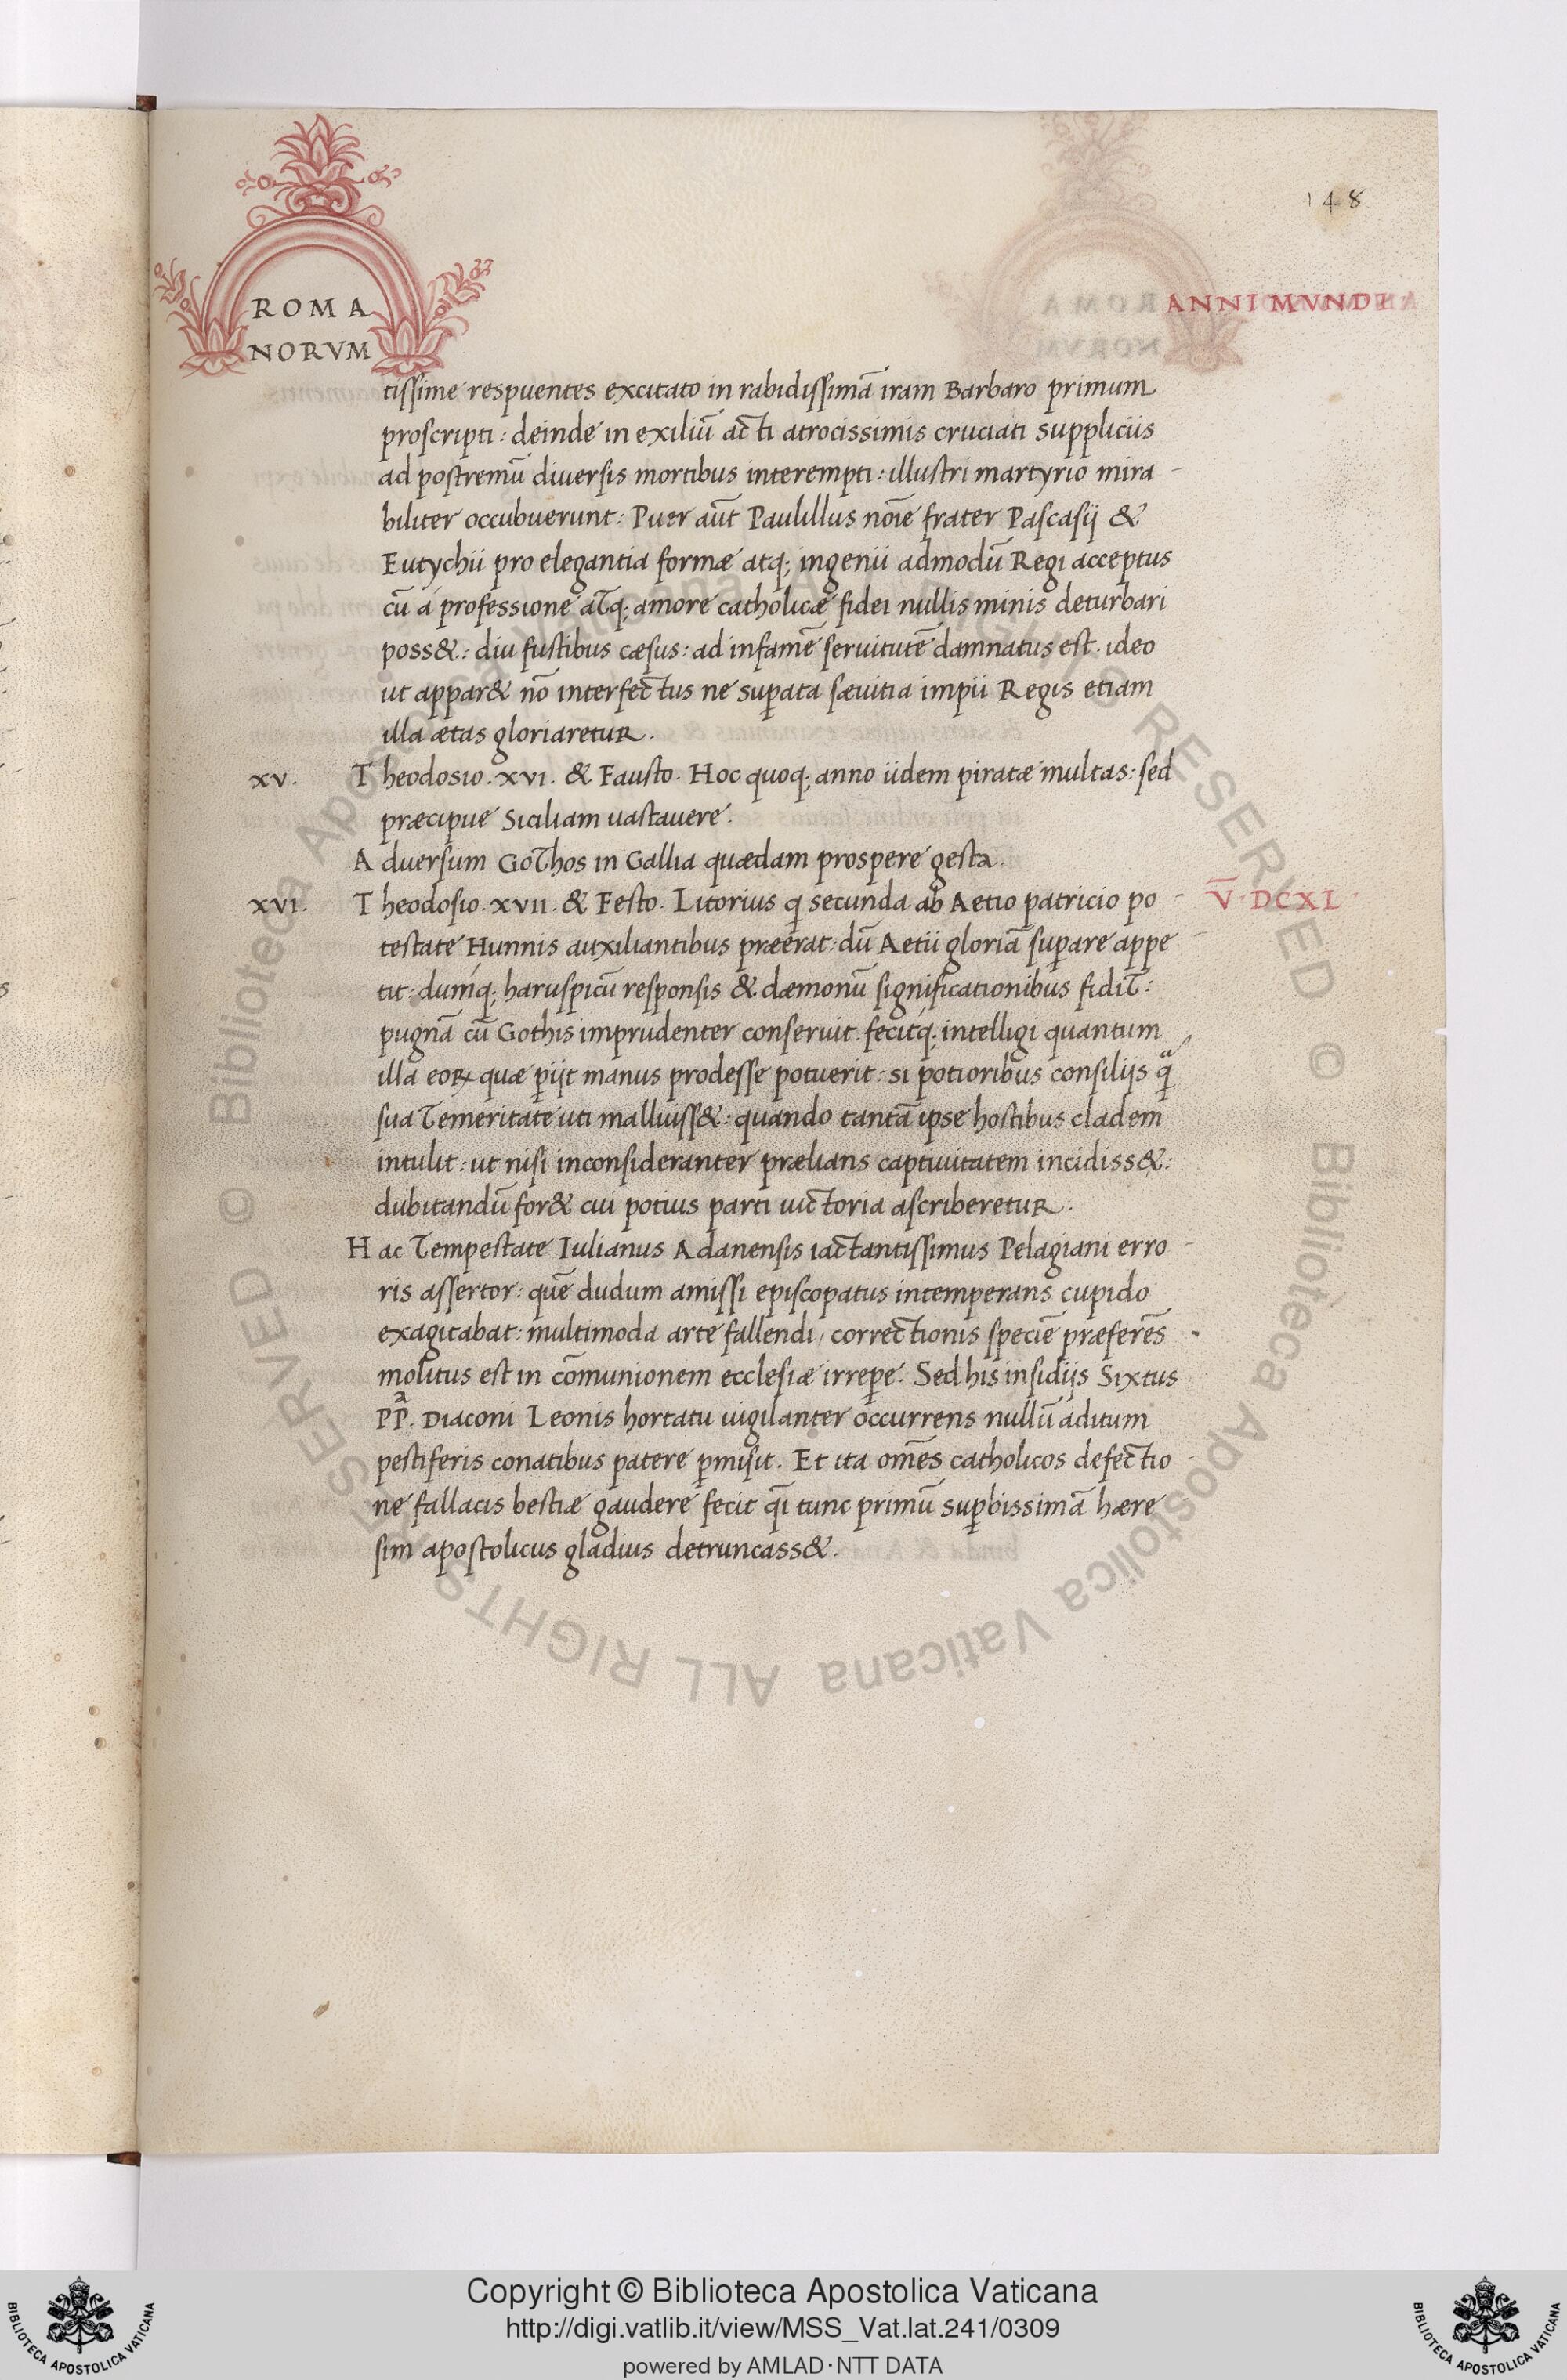 148
ROMA
NORVM
ANNI MVNDI
tissime respuentes excitato in rabidissimā iram Barbaro primum
proscripti: deinde in exiliū acti atrocissimis cruciati suppliciis
ad postremū diuersis mortibus interempti: illustri martyrio mira-
biliter occubuerunt: Puer aūt Paulillus noīe frater Pascasij &
Eutychii pro elegantia formæ atq; ingenii admodū Regi acceptus
cū a professione atq; amore catholicæ fidei nullis minis deturbari
poss&: diu fustibus cæsus: ad infamē seruitutē damnatus est. ideo
ut appar& nō interfectus ne suꝑata sæuitia impii Regis etiam
illa ætas gloriaretur.
xv. Theodosio. xvi. & Fausto. Hoc quoq; anno iidem piratæ multas: sed
præcipue Siciliam uastauere.
Aduersum Gothos in Gallia quædam prospere gesta.
xvi. Theodosio. xvii. & Festo. Litorius q secunda ab Aetio patricio po- V̄ DCXL
testate Hunnis auxiliantibus præerat: dū Aetii gloriā suꝑare appe-
tit: dumq; haruspicū responsis & dæmonū significationibus fidit:
pugnā cū Gothis imprudenter conseruit. fecitq; intelligi quantum
illa eoꝝ quæ ꝑijt manus prodesse potuerit: si potioribus consilijs qᷓ
sua temeritate uti malluiss&: quando tantā ipse hostibus cladem
intulit: ut nisi inconsideranter prælians captiuitatem incidiss&:
dubitandū for& cui potius parti uictoria ascriberetur.
Hac tempestate Iulianus Adanensis iactantissimus Pelagiani erro-
ris assertor: quē dudum amissi episcopatus intemperans cupido
exagitabat: multimoda arte fallendi, correctionis speciē præferēs
molitus est in cōmunionem ecclesiæ irreꝑe. Sed his insidijs Sixtus
PPᷓ. Diaconi Leonis hortatu uigilanter occurrens nullū aditum
pestiferis conatibus patere ꝑmisit. Et ita omēs catholicos defectio-
ne fallacis bestiæ gaudere fecit qī tunc primū suꝑbissimā hære
sim apostolicus gladius detruncass&.
© Biblioteca Apostolica Vaticana ALL RIGHTS RESERVED © Biblioteca Apostolica Vaticana ALL RIGHTS RESERVED
Copyright © Biblioteca Apostolica Vaticana
http://digi.vatlib.it/view/MSS_Vat.lat.241/0309
powered by AMLAD·NTT DATA
BIBLIOTECA APOSTOLICA VATICANA
BIBLIOTECA APOSTOLICA VATICANA